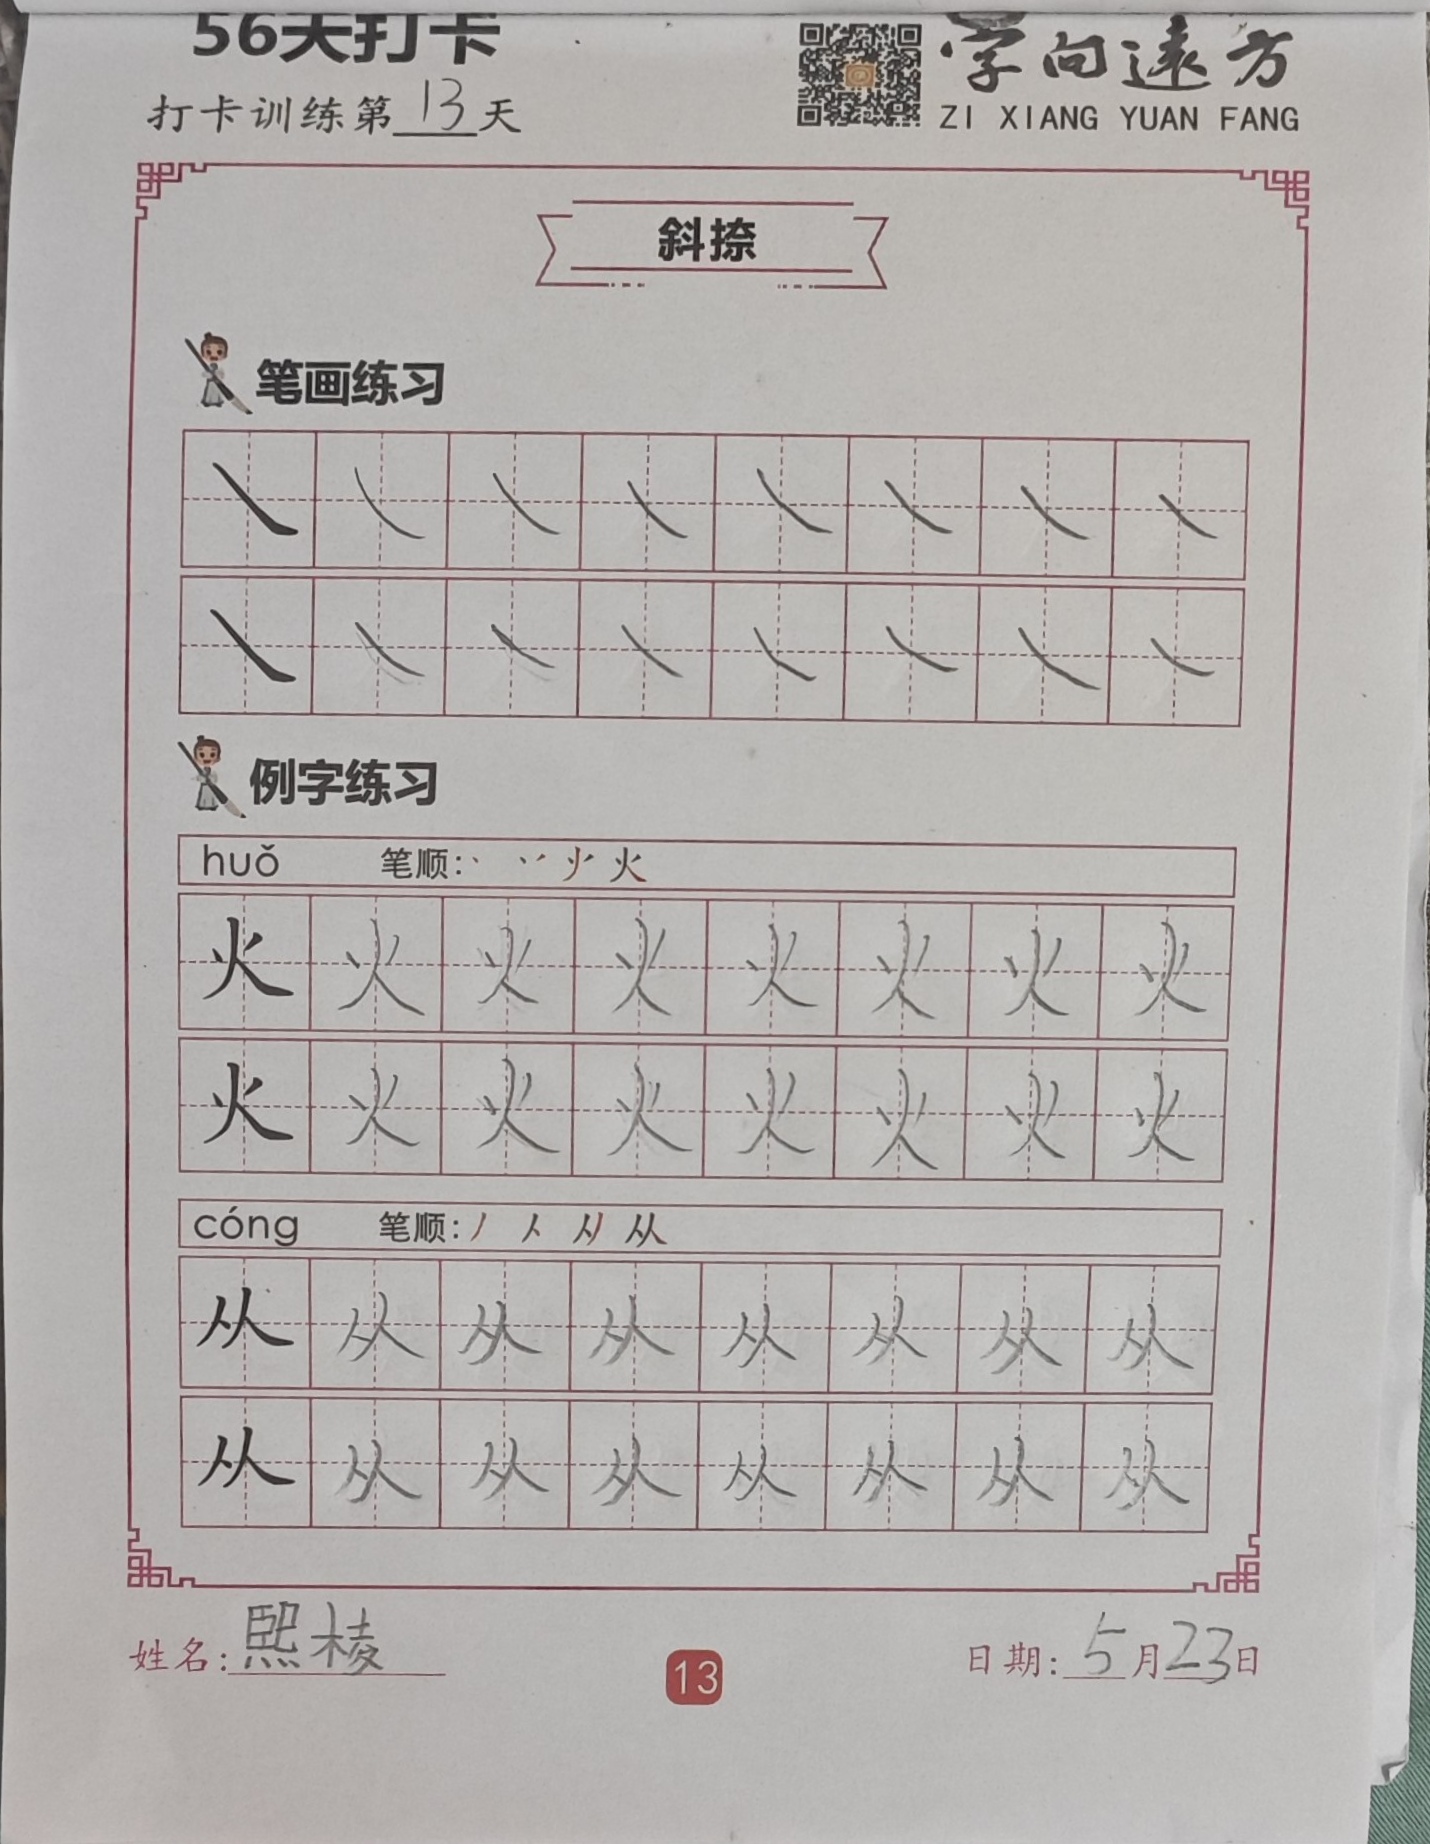 56天打卡
字向远方
打卡训练第13天
ZI XIANG YUAN FANG
斜捺
笔画练习
例字练习
huǒ 笔顺:丶 丷 火
火 火 火 火 火 火 火 火
火 火 火 火 火 火 火 火
cóng 笔顺:丿 人 从
从 从 从 从 从 从 从 从
从 从 从 从 从 从 从 从
姓名:熙棱
13
日期:5月23日